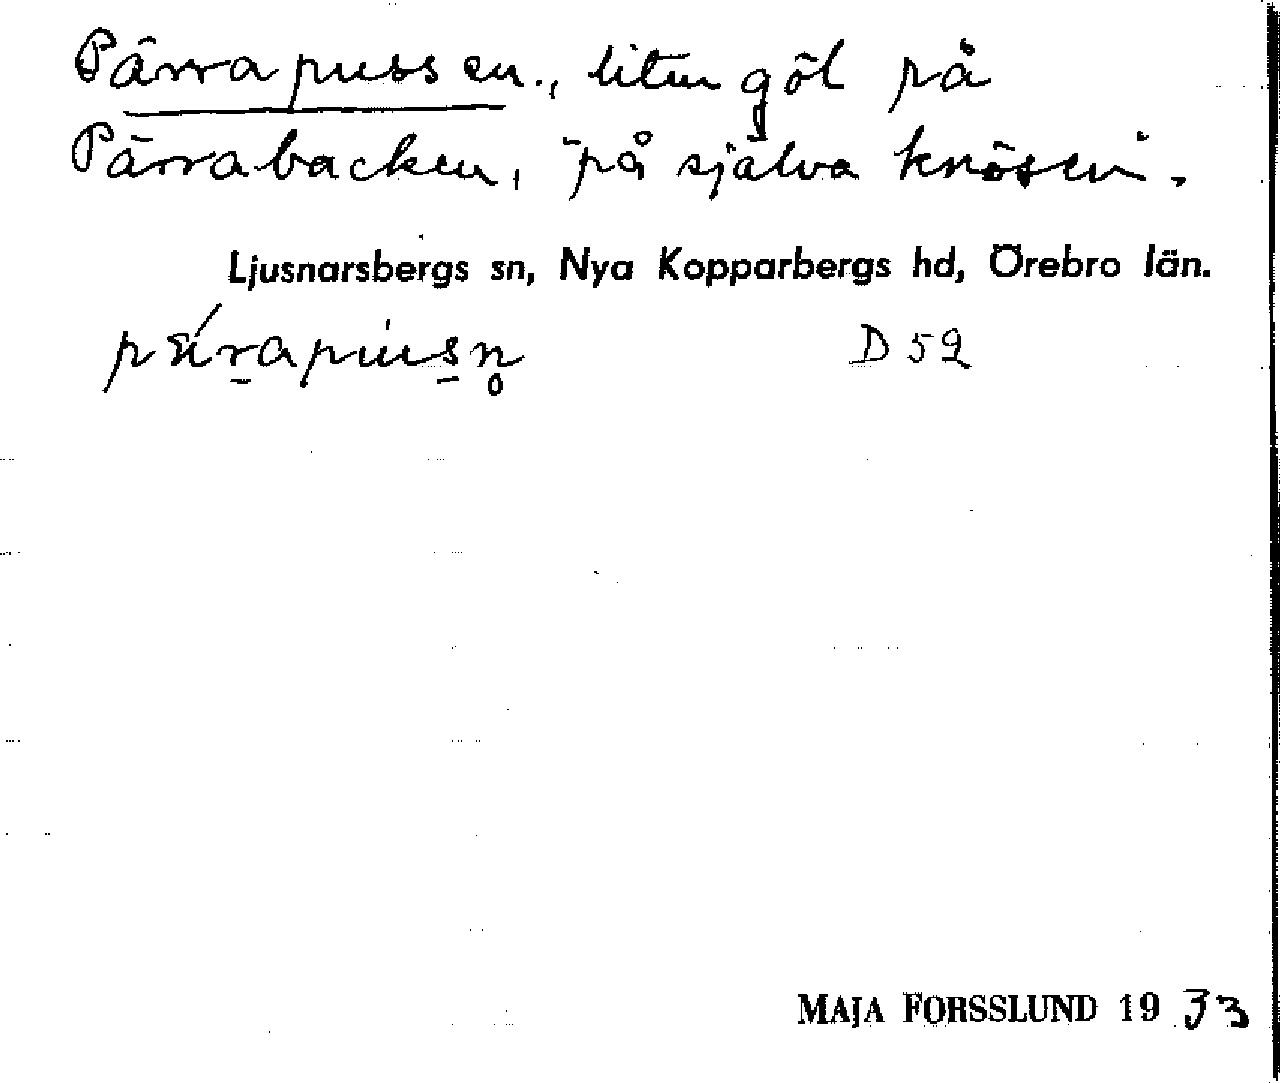 Pärrapussen., liten göl på
Pärrabacken, "på själva knösen".
Ljusnarsbergs sn, Nya Kopparbergs hd, Örebro län.
D 52
MAJA FORSSLUND 19 33